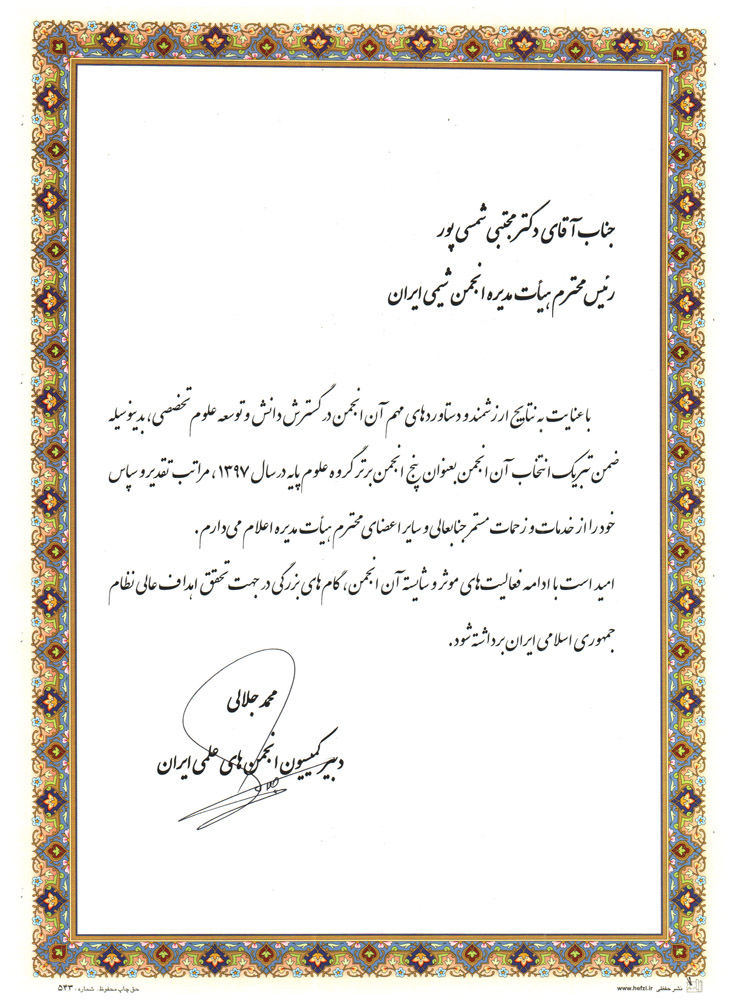 جناب آقای دکتر مجتبی شمسی پور
رئیس محترم هیأت مدیره انجمن شیمی ایران
با عنایت به نتایج ارزشمند و دستاوردهای مهم آن انجمن در گسترش دانش و توسعه علوم تخصصی، بدینوسیله
ضمن تبریک انتخاب آن انجمن بعنوان پنج انجمن برتر گروه علوم پایه در سال ۱۳۹۷، مراتب تقدیر و سپاس
خود را از خدمات و زحمات مستمر جنابعالی و سایر اعضای محترم هیأت مدیره اعلام می‌دارم.
امید است با ادامه فعالیت‌های موثر و شایسته آن انجمن، گام های بزرگی در جهت تحقق اهداف عالی نظام
جمهوری اسلامی ایران برداشته شود.
محمد جلالی
دبیر کمیسیون انجمن های علمی ایران
نشر حفظی www.hefzi.ir
حق چاپ محفوظ شماره: ۵۴۳